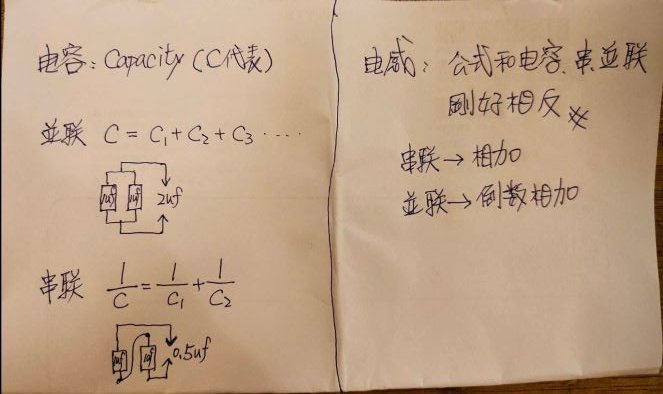 电容：Capacity（C代表）
並联 C = C₁ + C₂ + C₃ ‥‥
1uf 1uf 2uf
串联 1/C = 1/C₁ + 1/C₂
1uf 1uf 0.5uf
电感：公式和电容、串並联
刚好相反
串联→相加
並联→倒数相加